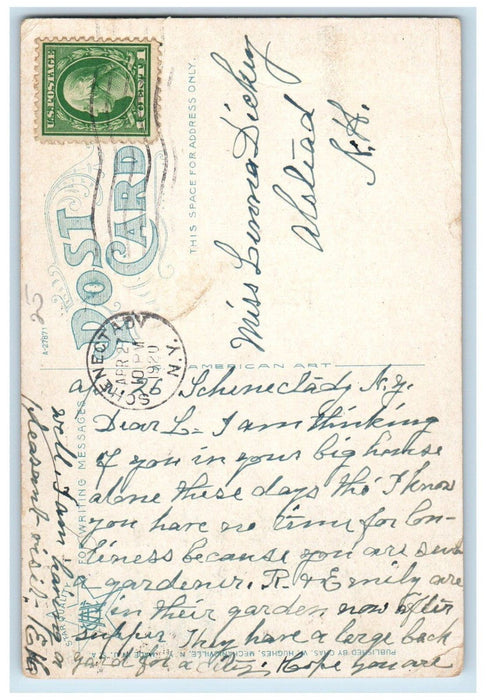 U.S. POSTAGE
1 CENT 1
POST
CARD
THIS SPACE FOR ADDRESS ONLY.
Miss Linna Dickey
Alstead
N.H.
A-27871
SCHENECTADY
APR 27
10 PM
1920
N.Y.
AMERICAN ART
FOR WRITING MESSAGES
Schenectady N.Y.
Dear L— I am thinking
of you in your big house
alone these days tho' I know
you have no time for lon-
liness because you are such
a gardener. R. & Emily are
in their garden now after
supper. They have a large back
yard for a city. Hope you are
well. I am having a
pleasant visit—
PUBLISHED BY CHAS. W. HUGHES, MECHANICVILLE, N.Y. MADE IN U.S.A.